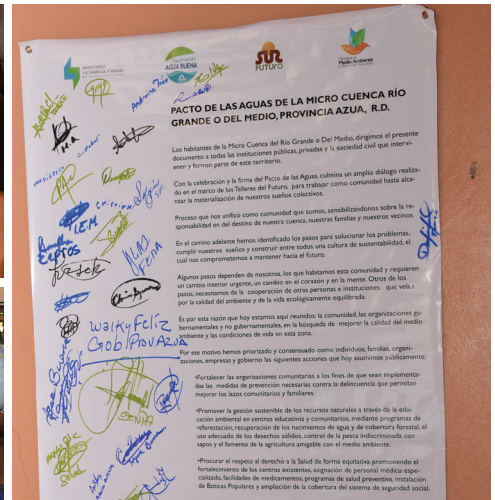 MINISTERIO
DE ENERGÍA Y MINAS
AGUA BUENA
SUR
FUTURO
Medio Ambiente
PACTO DE LAS AGUAS DE LA MICRO CUENCA RÍO
GRANDE O DEL MEDIO, PROVINCIA AZUA, R.D.
Los habitantes de la Micro Cuenca del Río Grande o Del Medio, dirigimos el presente
documento a todas las instituciones públicas, privadas y la sociedad civil que intervi-
enen y forman parte de este territorio.
Con la celebración y la firma del Pacto de las Aguas, culmina un amplio diálogo realiza-
do en el marco de los Talleres del Futuro, para trabajar como comunidad hasta alcan-
zar la materialización de nuestros sueños colectivos.
Proceso que nos unificó como comunidad que somos, sensibilizándonos sobre la re-
sponsabilidad en del destino de nuestra cuenca, nuestras familias y nuestros vecinos.
En el camino adelante hemos identificado los pasos para solucionar los problemas,
cumplir nuestros sueños y construir entre todos una cultura de sustentabilidad, el
cual nos comprometemos a mantener hacia el futuro.
Algunos pasos dependen de nosotros, los que habitamos esta comunidad y requieren
un cambio interior urgente, un cambio en el corazón y en la mente. Otros de los
pasos, necesitamos de la cooperación de otras personas e instituciones que velan
por la calidad del ambiente y de la vida ecológicamente equilibrada.
Es por esta razón que hoy estamos aquí reunidos: la comunidad, las organizaciones gu-
bernamentales y no gubernamentales, en la búsqueda de mejorar la calidad del medio
ambiente y las condiciones de vida en esta zona.
Por ese motivo hemos priorizado y consensuado como individuos, familias, organi-
zaciones, empresas y gobierno las siguientes acciones que hoy asumimos públicamente:
•Fortalecer las organizaciones comunitarias a los fines de que sean implementa-
das las medidas de prevención necesarias contra la delincuencia que permitan
mejorar los lazos comunitarios y familiares.
•Promover la gestión sostenible de los recursos naturales a través de la edu-
cación ambiental en centros educativos y comunitarios, mediante programas de
reforestación, recuperación de los nacimientos de agua y de cobertura forestal, el
uso adecuado de los desechos sólidos, control de la pesca indiscriminada con
tapos y el fomento de la agricultura amigable con el medio ambiente.
•Procurar el respeto al derecho a la Salud de forma equitativa promoviendo el
fortalecimiento de los centros existentes, asignación de personal médico espe-
cializado, facilidades de medicamentos, programas de salud preventiva, instalación
de Boticas Populares y ampliación de la cobertura del sistema de seguridad social.
M.A
I.E.M
Walky Feliz
Gob/Prov Azua